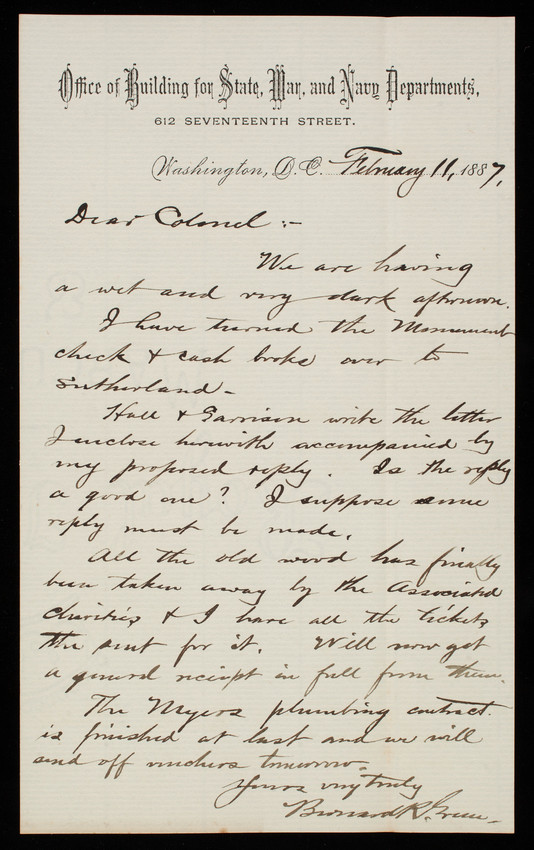 Office of Building for State, War, and Navy Departments,
612 SEVENTEENTH STREET.
Washington, D.C. February 11, 1887,
Dear Colonel :-
We are having
a wet and very dark afternoon.
I have turned the Monument
check & cash books over to
Sutherland -
Hall & Garrison write the letter
I inclose herewith accompanied by
my proposed reply. Is the reply
a good one? I suppose some
reply must be made.
All the old wood has finally
been taken away by the Associated
Charities & I have all the tickets
the sent for it. Will now get
a general receipt in full from them.
The Myers plumbing contract
is finished at last and we will
send off vouchers tomorrow.
Yours very truly
Bernard R. Green -